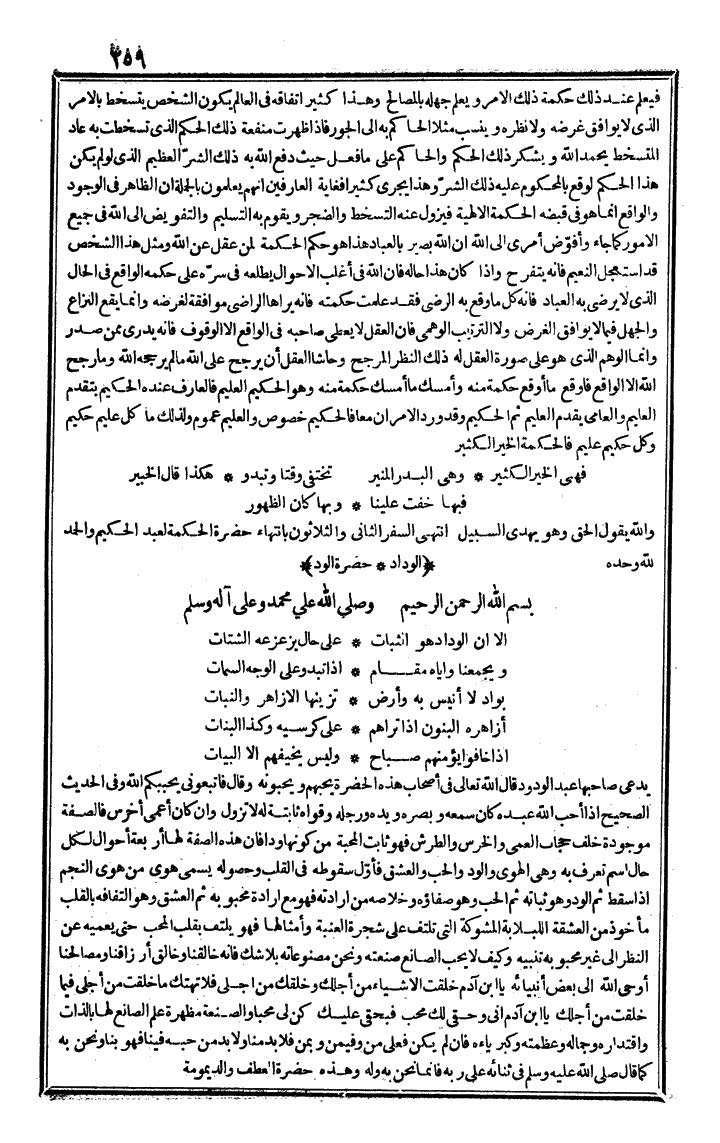 ٣٥٩
فيعلم عند ذلك حكمة ذلك الامر ويعلم جهله بالمصالح وهذا كثير اتفاقه فى العالم يكون الشخص يتسخط بالامر
الذى لا يوافق غرضه ولا نظره وينسب مثلا الحاكم به الى الجور فاذا ظهرت منفعة ذلك الحكم الذى تسخطت به عاد
المتسخط يحمد الله ويشكر ذلك الحكم والحاكم على ما فعل حيث دفع الله به ذلك الشرّ العظيم الذى لو لم يكن
هذا الحكم لوقع بالمحكوم عليه ذلك الشرّ وهذا يجرى كثيرا فغاية العارفين انهم يعلمون بالجلة ان الظاهر فى الوجود
والواقع انما هو فى قبضه الحكمة الالهية فيزول عنه التسخط والضجر ويقوم به التسليم والتفويض الى الله فى جميع
الامور كما جاء وأفوّض أمرى الى الله ان الله بصير بالعباد هذا هو حكم الحكمة لمن عقل عن الله ومثل هذا الشخص
قد استعجل النعيم فانه يتفرح واذا كان هذا حاله فان الله فى أغلب الاحوال يطلعه فى سرّه على حكمه الواقع فى الحال
الذى لا يرضى به العباد فانه كل ما وقع به الرضى فقد علمت حكمته فانه يراها الراضى موافقة لغرضه وانما يقع النزاع
والجهل فيما لا يوافق الغرض ولا الترتيب الوهمى فان العقل لا يعطى صاحبه فى الواقع الا الوقوف فانه يدرى ممن صدر
وانما الوهم الذى هو على صورة العقل له ذلك النظر المرجح وحاشا العقل أن يرجح على الله ما لم يرجحه الله وما رجح
الله الا الواقع فاوقع ما أوقع حكمة منه وأمسك ما أمسك حكمة منه وهو الحكيم العليم فالعارف عنده الحكيم يتقدم
العليم والعامى يقدم العليم ثم الحكيم وقد ورد الامران معا فالحكيم خصوص والعليم عموم ولذلك ما كل عليم حكيم
وكل حكيم عليم فالحكمة الخير الكثير
فهى الخير الكثير * وهى البدر المنير تختفى وقتا وتبدو * هكذا قال الخبير
فبها خفت علينا * وبها كان الظهور
والله يقول الحق وهو يهدى السبيل انتهى السفر الثانى والثلاثون بانتهاء حضرة الحكمة لعبد الحكيم والحد
لله وحده ﴿الوداد * حضرة الود﴾
بسم الله الرحمن الرحيم وصلي الله علي محمد وعلى آله وسلم
الا ان الوداد هو انثبات * على حال يزعزعه الشتات
ويجمعنا واياه مقام * اذا تبدو على الوجه السمات
بواد لا أنيس به وأرض * تزينها الازاهر والنبات
أزاهره البنون اذا تراهم * على كرسيه وكذا البنات
اذا خافوا يؤمنهم صباح * وليس يخيفهم الا البيات
يدعى صاحبها عبد الودود قال الله تعالى فى أصحاب هذه الحضرة يحبهم ويحبونه وقال فاتبعونى يحببكم الله وفى الحديث
الصحيح اذا أحب الله عبده كان سمعه وبصره ويده ورجله وقواه ثابتة له لا تزول وان كان أعمى أخرس فالصفة
موجودة خلف حجاب العمى والخرس والطرش فهو ثابت المحبة من كونها ودا فان هذه الصفة لها أربعة أحوال لكل
حال اسم تعرف به وهى الهوى والود والحب والعشق فأوّل سقوطه فى القلب وحصوله يسمى هوى من هوى النجم
اذا سقط ثم الود وهو ثباته ثم الحب وهو صفاؤه وخلاصه من ارادته فهو مع ارادة محبوبه ثم العشق وهو التفافه بالقلب
مأخوذ من العشقة اللبلابة المشوكة التى تلتف على شجرة العنبة وأمثالها فهو يلتف بقلب المحب حتى يعميه عن
النظر الى غير محبوبه تنبيه وكيف لا يحب الصانع صنعته ونحن مصنوعاته بلا شك فانه خالقنا وخالق أرزاقنا ومصالحنا
أوحى الله الى بعض أنبيائه يا ابن آدم خلقت الاشياء من أجلك وخلقتك من اجلى فلا تهتك ما خلقت من أجلى فيما
خلقت من أجلك يا ابن آدم انى وحقى لك محب فبحقى عليك كن لى محبا والصنعة مظهرة علم الصانع لها بالذات
واقتداره وجماله وعظمته وكبرياءه فان لم يكن فعلى من وفيمن وبمن فلا بد منا ولا بد من حبه فينا فهو بنا ونحن به
كما قال صلى الله عليه وسلم فى ثنائه على ربه فانما نحن به وله وهذه حضرة العطف والديمومة